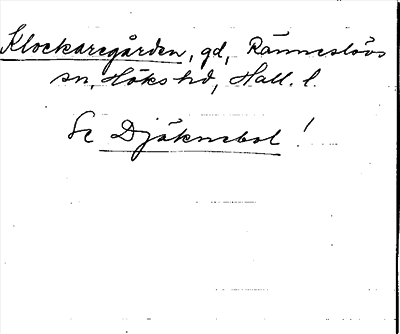 Klockaregården, gd, Ränneslövs
sn, Höks hd, Hall. l.
Se Djäknebol!